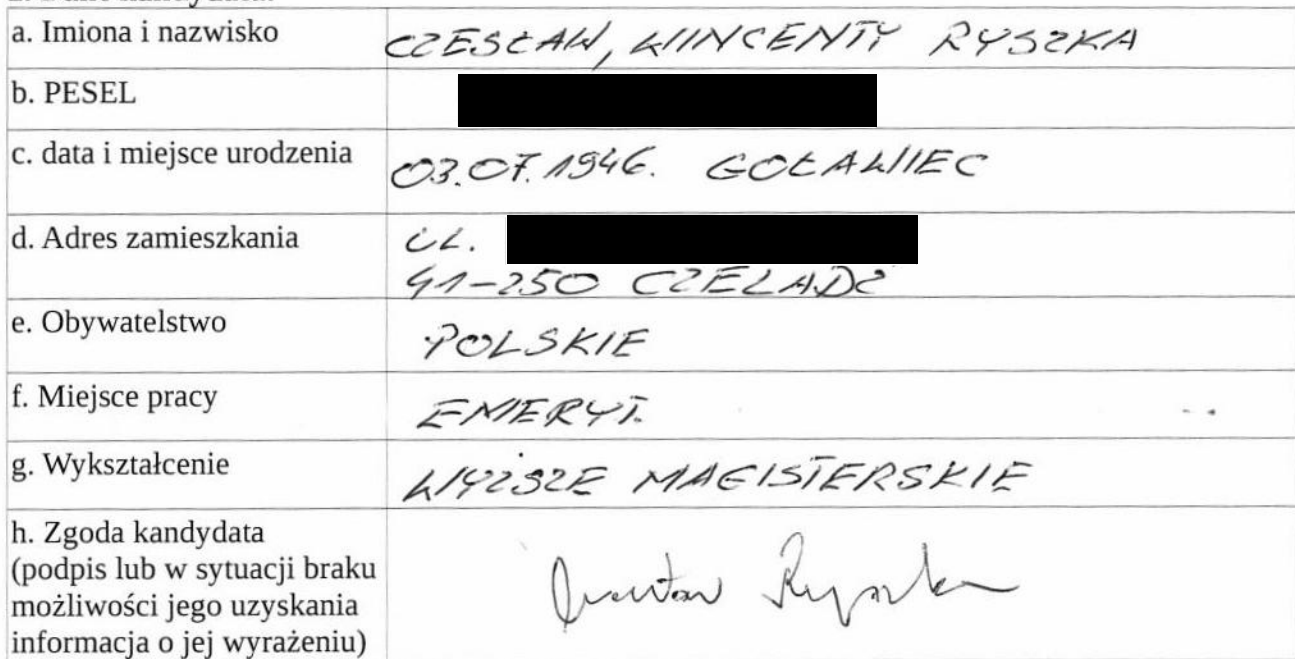 a. Imiona i nazwisko
CZESŁAW, WINCENTY RYSZKA
b. PESEL
c. data i miejsce urodzenia
03.07.1946. GOŁAWIEC
d. Adres zamieszkania
UL.
41-250 CZELADŹ
e. Obywatelstwo
POLSKIE
f. Miejsce pracy
EMERYT.
g. Wykształcenie
WYŻSZE MAGISTERSKIE
h. Zgoda kandydata
(podpis lub w sytuacji braku
możliwości jego uzyskania
informacja o jej wyrażeniu)
Czesław Ryszka